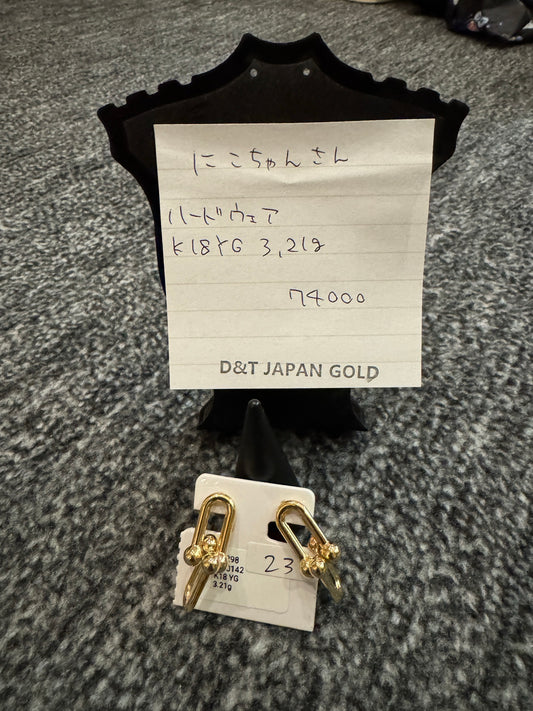 にこちゃんさん
ハードウェア
K18YG 3,21g
74000
D&T JAPAN GOLD
98
J142
K18 YG
3.21g
23